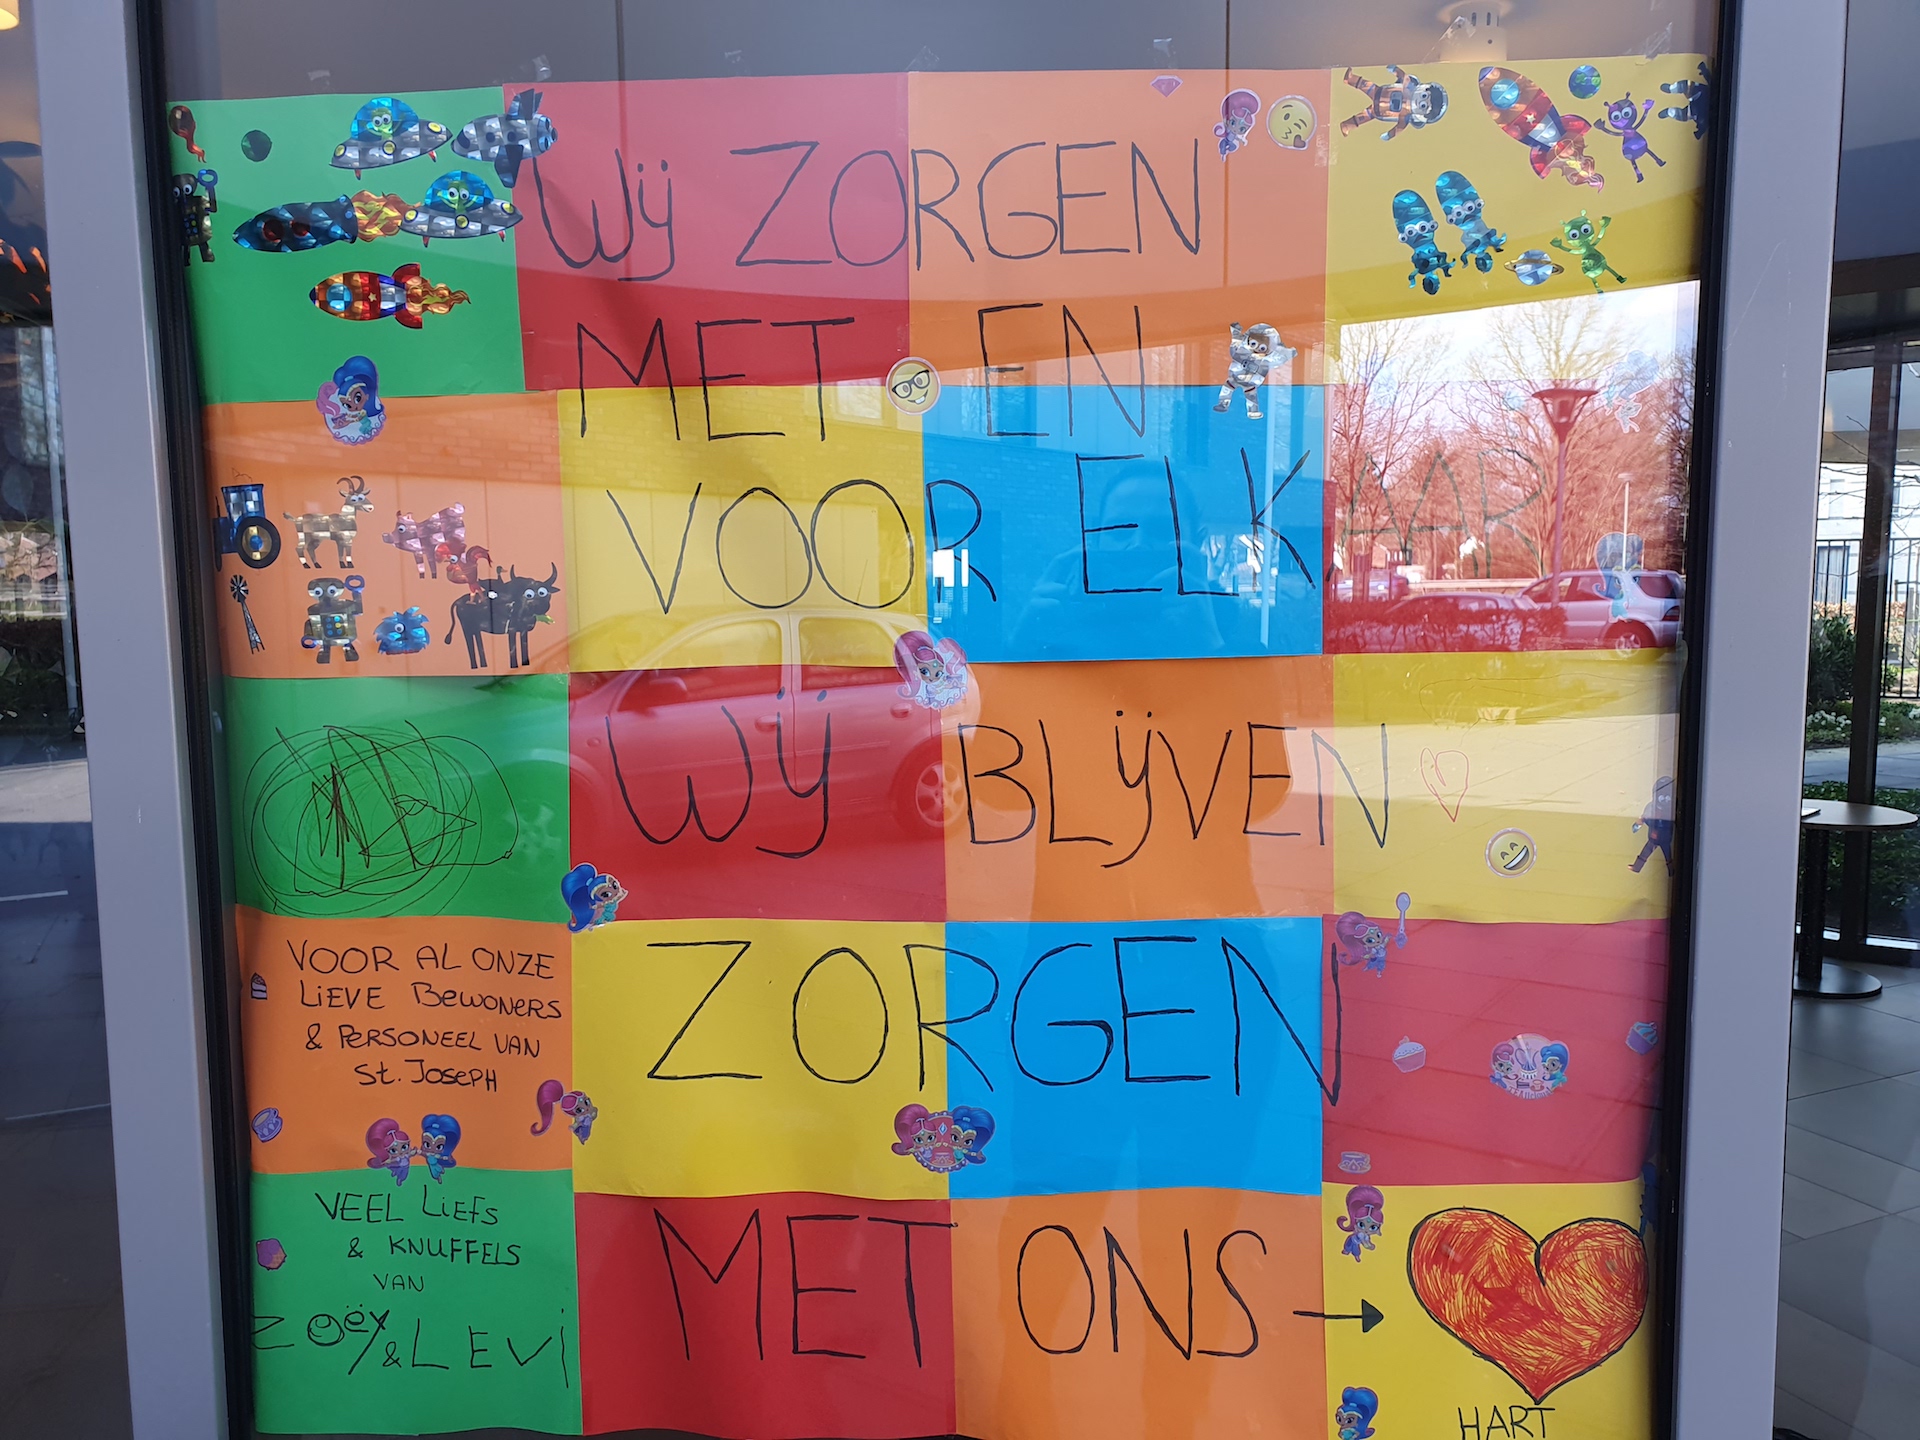 Wij ZORGEN
MET EN
VOOR ELKAAR
Wij BLijVEN
ZORGEN
MET ONS →
HART
VOOR AL ONZE
LiEVE BEWONERS
& PERSONEEL VAN
St. JOSEPH
VEEL LiEFS
& KNUFFELS
VAN
ZOËY
& LEVi